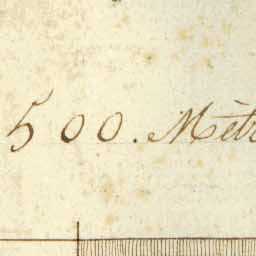 500. Mèt